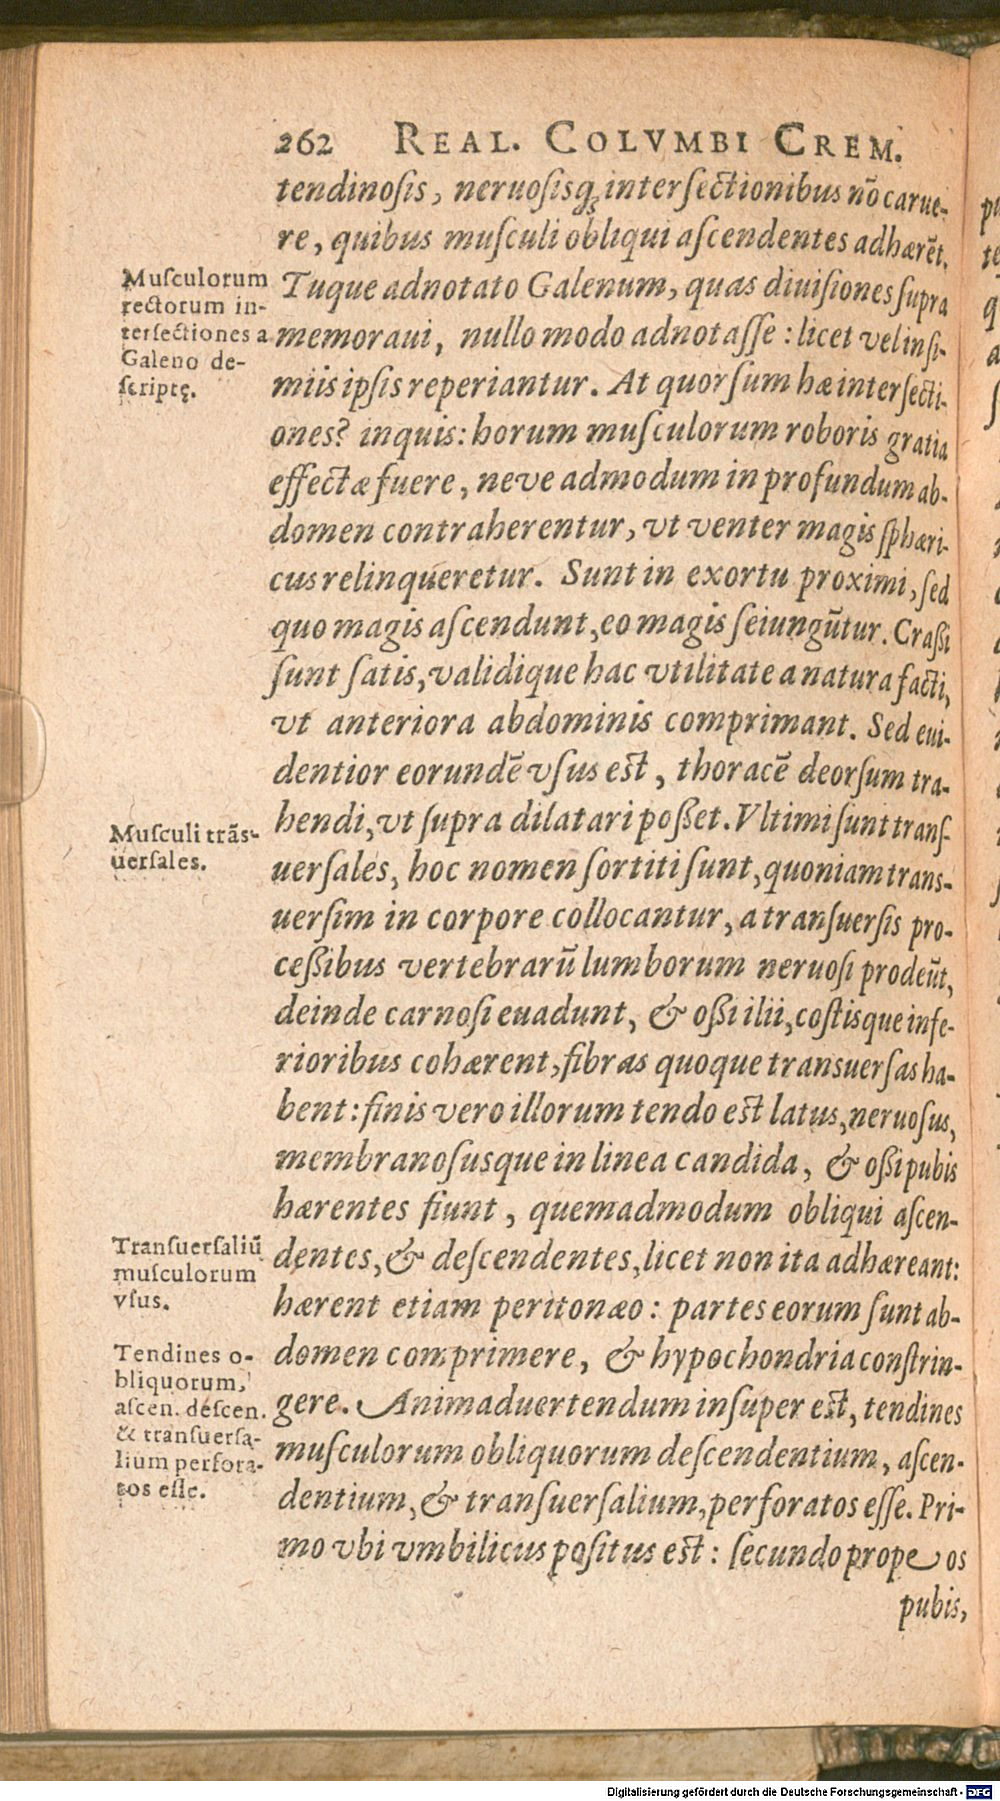 262 REAL. COLVMBI CREM.
tendinosis, neruosisq́ꝫ intersectionibus nō caruere-
re, quibus musculi obliqui ascendentes adhærēt.
Tuque adnotato Galenum, quas diuisiones supra
memoraui, nullo modo adnotasse: licet vel in si-
miis ipsis reperiantur. At quorsum hæ intersecti-
ones? inquis: horum musculorum roboris gratia
effectæ fuere, neve admodum in profundum ab-
domen contraherentur, vt venter magis sphæri-
cus relinqueretur. Sunt in exortu proximi, sed
quo magis ascendunt, eo magis seiungūtur. Craßi
sunt satis, validique hac vtilitate a natura facti,
vt anteriora abdominis comprimant. Sed eui-
dentior eorundē vsus est, thoracē deorsum tra-
hendi, vt supra dilatari poßet. Vltimi sunt trans-
uersales, hoc nomen sortiti sunt, quoniam trans-
uersim in corpore collocantur, a transuersis pro-
ceßibus vertebrarū lumborum neruosi prodeūt,
deinde carnosi euadunt, & oßi ilii, costisque infe-
rioribus cohærent, fibras quoque transuersas ha-
bent: finis vero illorum tendo est latus, neruosus,
membranosusque in linea candida, & oßi pubis
hærentes fiunt, quemadmodum obliqui ascen-
dentes, & descendentes, licet non ita adhæreant:
hærent etiam peritonæo: partes eorum sunt ab-
domen comprimere, & hypochondria constrin-
gere. Animaduertendum insuper est, tendines
musculorum obliquorum descendentium, ascen-
dentium, & transuersalium, perforatos esse. Pri-
mo vbi vmbilicus positus est: secundo prope os
pubis,
Musculorum
rectorum in-
tersectiones a
Galeno de-
scriptę.
Musculi trās-
uersales.
Transuersaliū
musculorum
vsus.
Tendines o-
bliquorum,
ascen. descen.
& transuersa-
lium perfora-
tos esse.
Digitalisierung gefördert durch die Deutsche Forschungsgemeinschaft - DFG